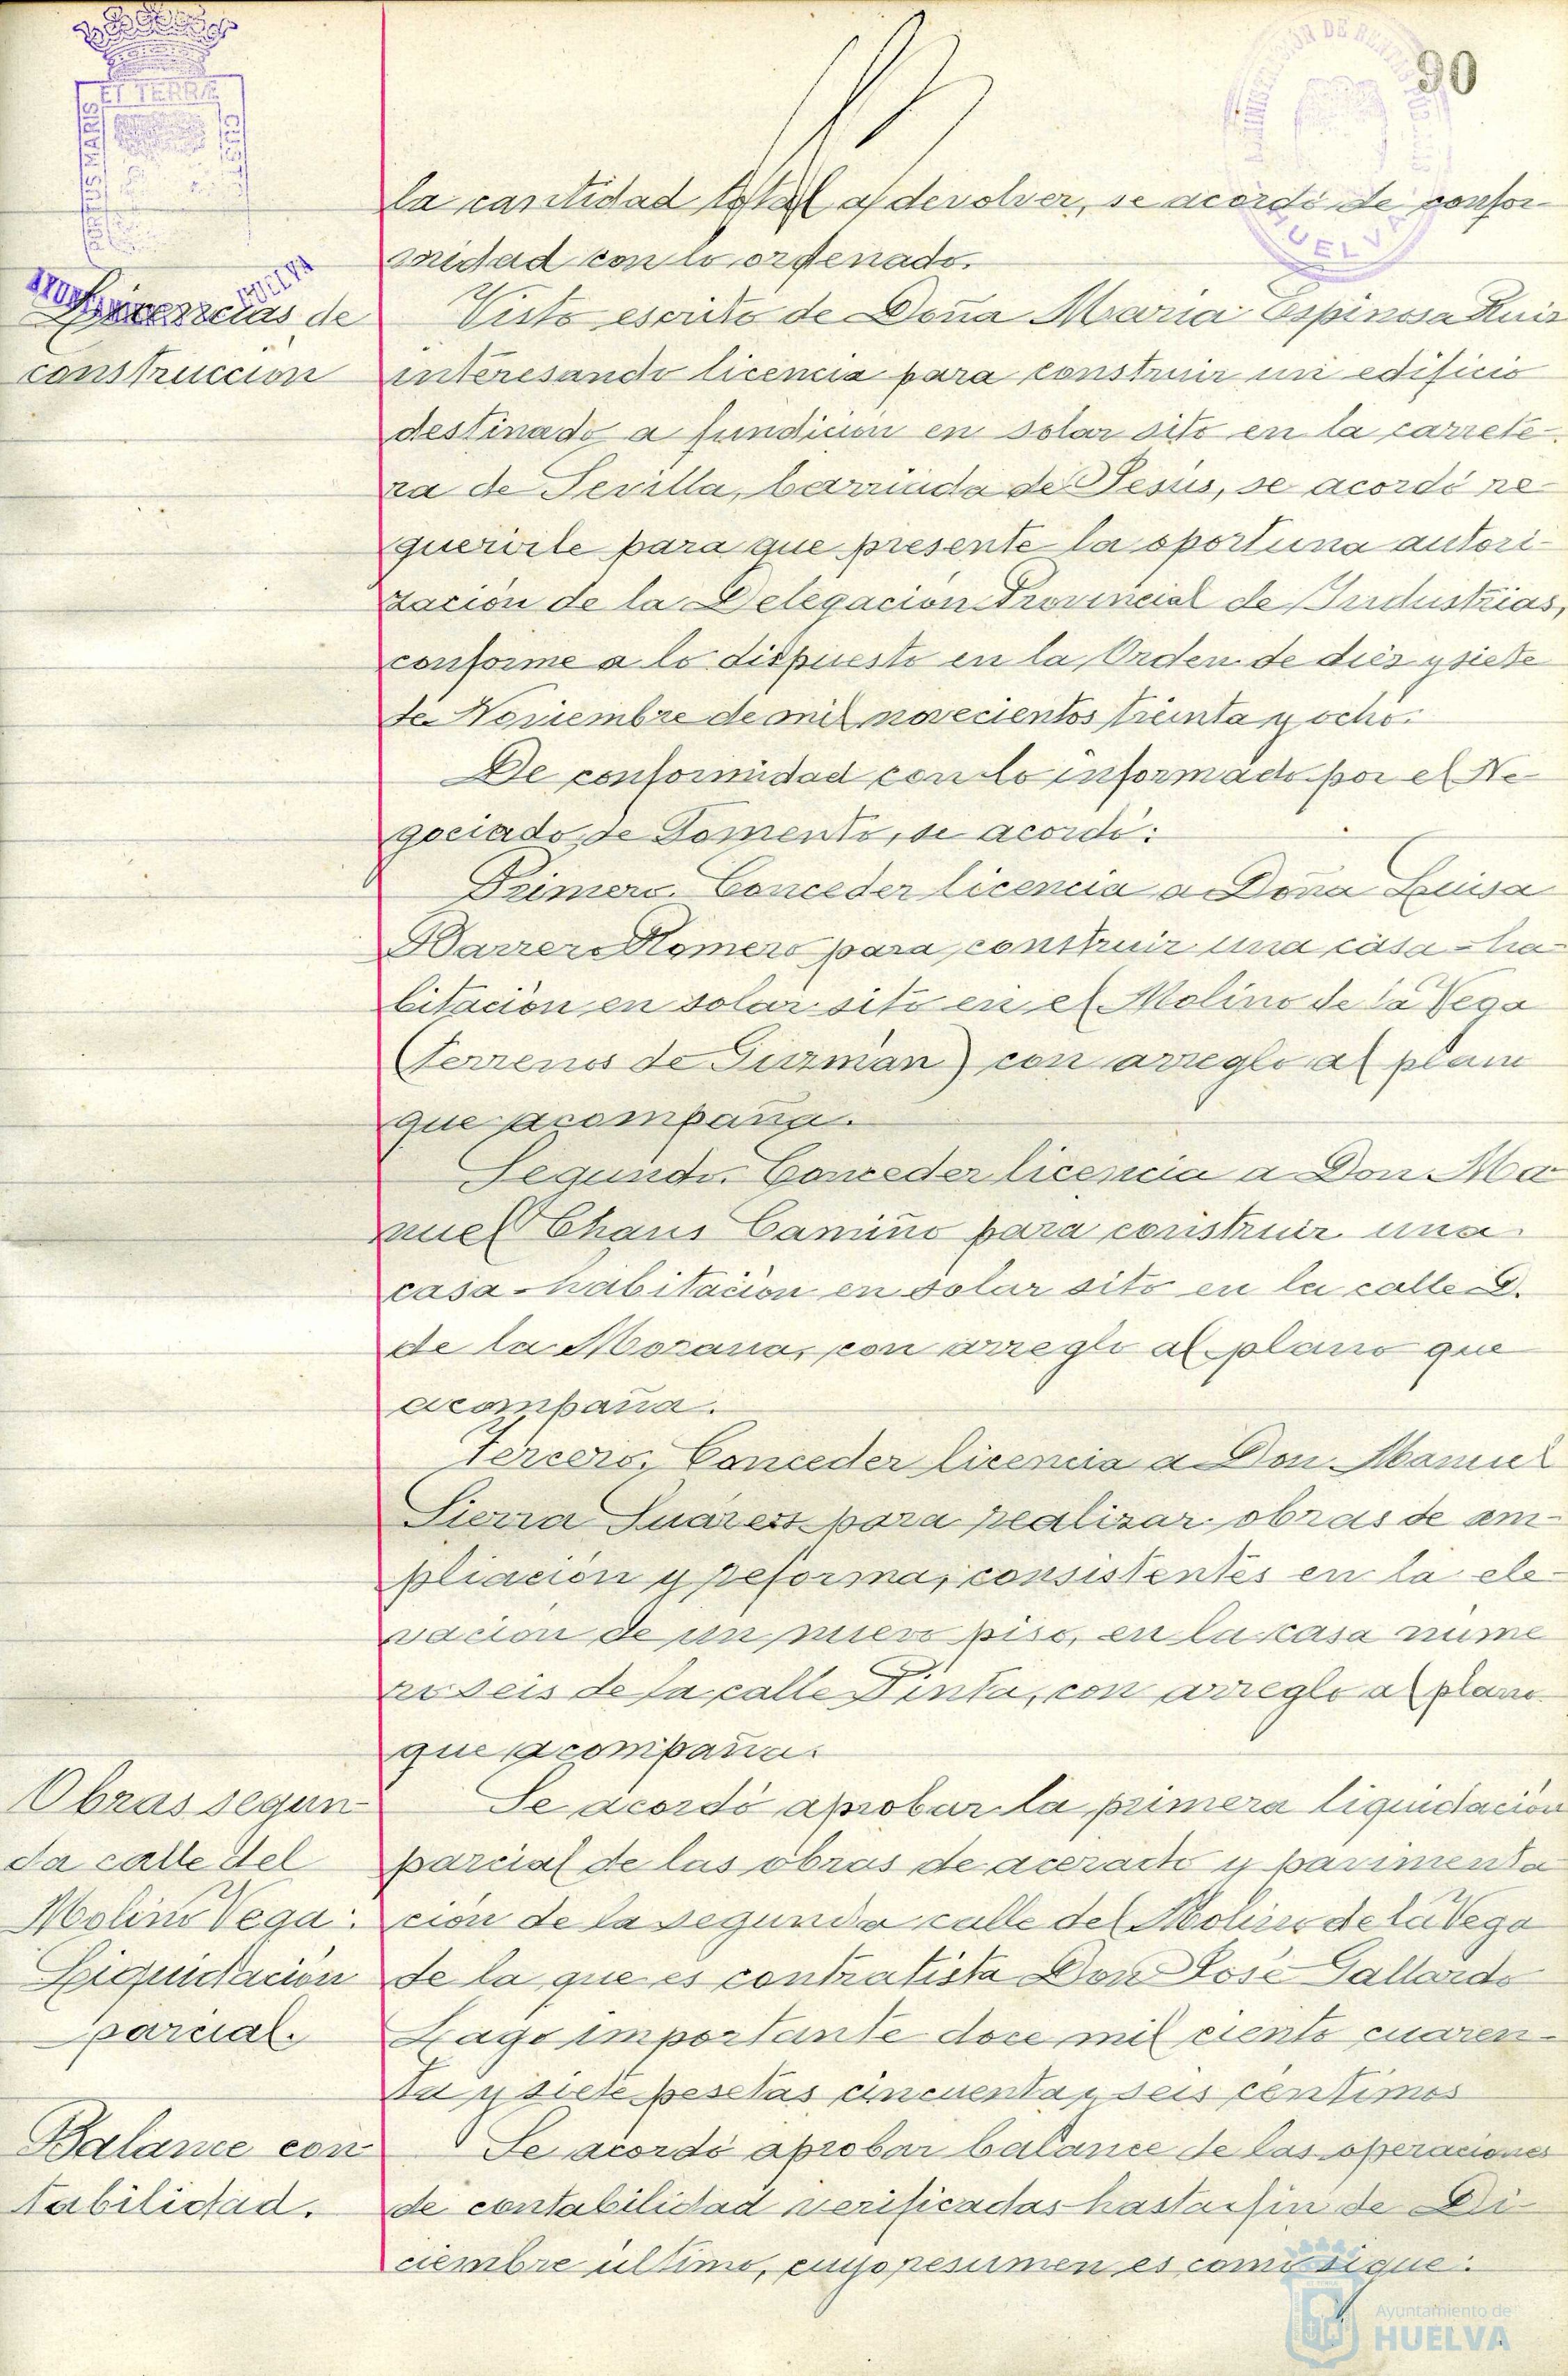 90
la cantidad total a devolver, se acordó de confor
midad con lo ordenado.
Licencias de
construcción
Visto escrito de Doña Maria Espinosa Ruiz
interesando licencia para construir un edificio
destinado a fundición en solar sito en la carrete-
ra de Sevilla, barriada de Jesús, se acordó re-
querirle para que presente la oportuna autori-
zación de la Delegación Provincial de Industrias,
conforme a lo dispuesto en la Orden de diez y siete
de Noviembre de mil novecientos treinta y ocho.
De conformidad con lo informado por el Ne-
gociado de Fomento, se acordó:
Primero. Conceder licencia a Doña Luisa
Barrero Romero para construir una casa-ha-
bitación en solar sito en el Molino de la Vega
(Terrenos de Guzmán) con arreglo al plano
que acompaña.
Segundo. Conceder licencia a Don Ma
nuel Chans Camiño para construir una
casa-habitación en solar sito en la calle
de la Morana, con arreglo al plano que
acompaña.
Tercero. Conceder licencia a Don Manuel
Sierra Suárez para realizar obras de am-
pliación y reforma, consistentes en la ele-
vación de un nuevo piso, en la casa núme
ro seis de la calle Pinta, con arreglo al plano
que acompaña.
Obras segun-
da calle del
Molino Vega:
Liquidación
parcial.
Se acordó aprobar la primera liquidación
parcial de las obras de acerado y pavimenta
ción de la segunda calle del Molino de la Vega
de la que es contratista Don José Gallardo
Lago importante doce mil ciento cuaren-
ta y siete pesetas cincuenta y seis céntimos
Balance con
tabilidad.
Se acordó aprobar balance de las operaciones
de contabilidad verificadas hasta fin de Di-
ciembre último, cuyo resumen es como sigue:
Ayuntamiento de
HUELVA